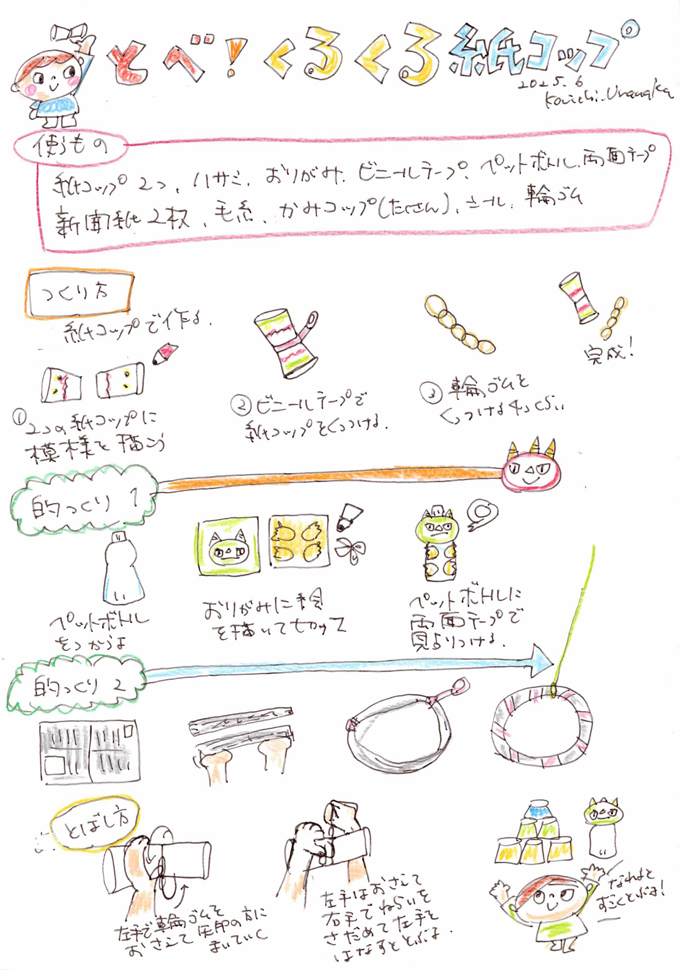 とべ！くるくる紙コップ
2025.6
使うもの
紙コップ2つ、ハサミ、おりがみ、ビニールテープ、ペットボトル、両面テープ
新聞紙2枚、毛糸、かみコップ(たくさん)、シール、輪ゴム
つくり方
紙コップで作る。
① 2つの紙コップに
模様を描こう
② ビニールテープで
紙コップをくっつける。
③ 輪ゴムを
くっつける4つくらい
完成！
的つくり 1
ペットボトル
をつかうよ
おりがみに絵
を描いて切って
ペットボトルに
両面テープで
見はりつける。
的つくり 2
とばし方
左手で輪ゴムを
おさえて矢印の方に
まいていく
左手はおさえて
右手でねらいを
さだめて左手を
はなすととぶよ。
なれると
すごくとぶよ！